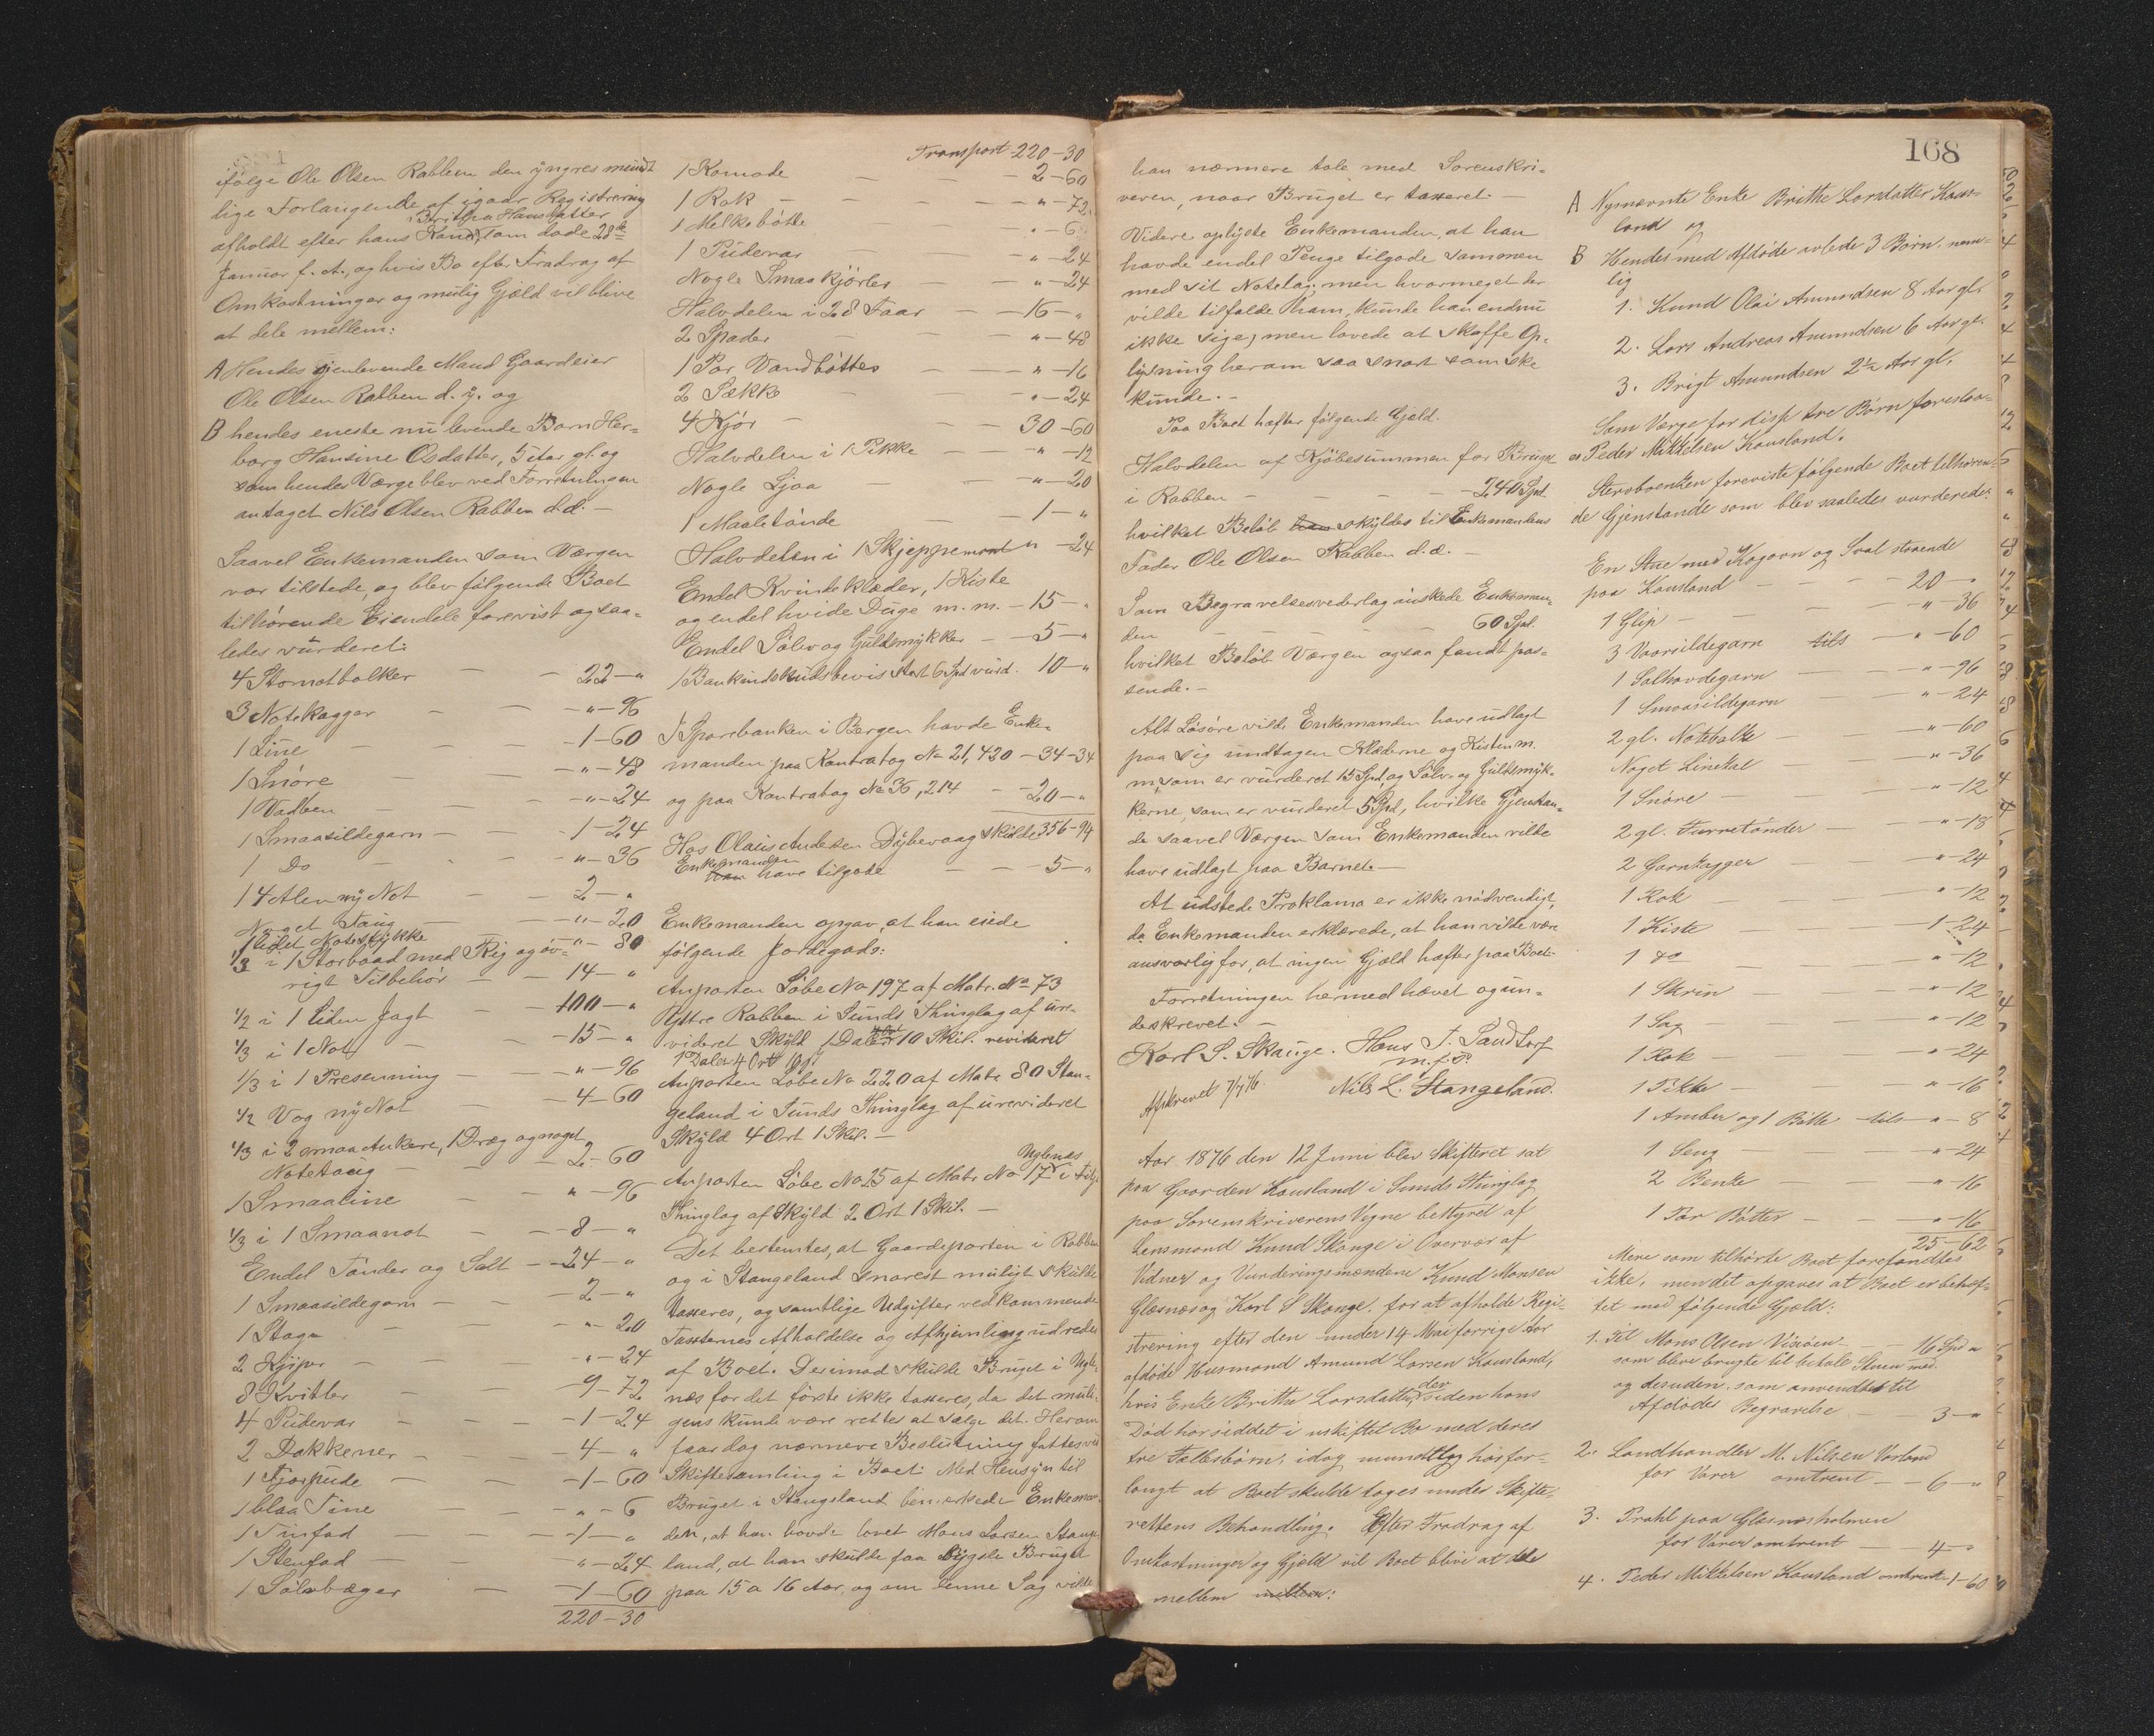 ifølge Ole Olsen Rabben den yngres mundt
lige Forlangende af igaar Registrering
Brithe Hansdatter
afholdt efter hans Kone, som døde 28de
Januar f. A., og hvis Bo efter Fradrag af
Omkostninger og mulig Gjæld vil blive
at dele mellem:
A Hendes gjenlevende Mand Gaardeier
Ole Olsen Rabben d. y. og
B hendes eneste nu levende Barn Her=
borg Hansine Olsdatter, 5 Aar gl. og
som hendes Værge blev ved Forretningen
antaget Nils Olsen Rabben d.d. –
Saavel Enkemanden som Værgen
var tilstede, og blev følgende Boet
tilhørende Eiendele forevist og saa=
ledes vurderet:
4 Stornotbolker – – 22 – "
3 Notekagger – – – " – 96
1 Line – – – 1 – 60
1 Snøre – – " – 48
1 Vadben – – – " – 24
1 Smaasildegarn – – – 1 – 24
1 Do – – – " – 36
14 Alen ny Not – – 2 – "
Noget Taug – – " – 20
1 lidet Notestykke – " – 80
1/3 i 1 Storbaad med Rig og øv=
rigt Tilbehør – – 14 – "
1/2 i 1 liden Jagt – – 100 – "
1/3 i 1 Not – – 15 – "
1/3 i 1 Presenning – – " – 96
1/2 Vog ny Not – – 4 – 60
1/3 i 2 smaa Ankere, 1 Dræg og noget
Notetaug – – – 2 – 60
1 Smaaline – – " – 96
1/3 i 1 Smaanot – – 8 – "
Endel Tønder og Salt – – 24 – "
1 Smaasildegarn – – 2 – "
1 Stage – – " – 20
2 Kjiper – – – " – 24
8 Kvitler – – 9 – 72
4 Pudevar – – – 1 – 24
2 Dækkener – – – 4 – "
1 Fjærpude – – – 1 – 60
1 blaa Tine – – " – 6
1 Tinfad – – – 1 – "
1 Stenfad – – " – 24
1 Sølvbæger – – 1 – 60
220 – 30
Transport 220 – 30
1 Komode – – 2 – 60
1 Rok – – – " – 72
1 Melkebøtte – " – 6
1 Pudevar – – " – 24
Nogle Smaa Kjørler – – " – 24
Halvdelen i 28 Faar – – 16 – "
2 Spader – – " – 48
1 Par Vandbøtter – – " – 16
2 Sække – – " – 24
4 Kjør – – – 30 – 60
Halvdelen i 1 Pikke – – " – 12
Nogle Ljaa – – " – 20
1 Maaletønde – – 1 – "
Halvdelen i 1 Skjeppemaal " – 24
Endel Kvindeklæder, 1 Kiste
og endel hvide Duge m. m. – 15 – "
Endel Sølv og Guldsmykker – – 5 – "
1 Bankindskudsbevis stort 6 Spd vurd. 10 – "
I Sparebanken i Bergen havde Enke=
manden paa Kontrabog No 21,420 – 34 – 34
og paa Kontrabog No 36,214 – 20 – "
356 – 94
Hos Olaus Andersen Dybevaag skulde
Enkemanden
han have tilgode – – 5 – "
Enkemanden opgav, at han eiede
følgende Jordegods:
Anparten Løbe No 197 af Matr. No 73
Yttre Rabben i Sunds Thinglag af ure=
videret Skyld 1 Daler 10 Skil. revideret
1 Daler 4 Ort
Anparten Løbe No 220 af Matr 80 Stan=
geland i Sunds Thinglag af urevideret
Skyld 4 Ort 1 Skil. –
Uglenæs
Anparten Løbe No 25 af Matr No 17 i
Thinglag af Skyld 2 Ort 1 Skil. –
Det bestemtes, at Gaardsparten i Rabben
og i Stangeland snarest muligt skulde
taxeres, og samtlige Udgifter vedkommende
Taxternes Afholdelse og Afhjemling udredes
af Boet. Derimod skulde Bruget i Ugle=
næs for det første ikke taxeres, da det muli=
gens kunde være rettes at sælge det. Herom
faar dog nærmere Beslutning fattes ved
Skiftesamling i Boet. Med Hensyn til
Bruget i Stangeland bemærkede Enkeman=
den, at han havde lovet Mons Larsen Stange=
land, at han skulde faa bygsle Bruget
paa 15 a 16 Aar, og om denne Sag vilde
168
han nærmere tale med Sorenskri=
veren, naar Bruget er taxeret. –
Videre oplyste Enkemanden, at han
havde endel Penge tilgode sammen
med sit Notelag; men hvormeget der
vilde tilfalde ham, kunde han endnu
ikke sige, men lovede at skaffe Op=
lysning herom saa snart som ske
kunde. –
Paa Boet hæfter følgende Gjæld.
Halvdelen af Kjøbesummen for Bruget
i Rabben – – – 240 Spd.
hvilket Beløb han skyldes til Enkemandens
Fader Ole Olsen Rabben d.æ. –
Som Begravelsesvederlag ønskede Enkeman=
den – – – 60 Spd.
hvilket Beløb Værgen ogsaa fandt pas=
sende. –
Alt Løsøre vilde Enkemanden have udlagt
paa sig undtagen Klæderne og Kisten m.
m, som er vurderet 15 Spd, og Sølv- og Guldsmyk=
kerne, som er vurderet 5 Spd, hvilke Gjenstan=
de saavel Værgen som Enkemanden vilde
have udlagt paa Barnet. –
At udstede Proklama er ikke nødvendigt,
da Enkemanden erklærede, at han vilde være
ansvarlig for, at ingen Gjæld hæfter paa Boet. –
Forretningen hermed hævet og un=
derskrevet. –
Karl S. Skauge. Hans J. Sandtorf
m. f. P.
Afskrevet 7/7 76. Nils L. Stangeland.
Aar 1876 den 12 Juni blev Skifteret sat
paa Gaarden Kausland i Sunds Thinglag
paa Sorenskriverens Vegne bestyret af
Lensmand Knud Skauge i Overvær af
Vidner og Vurderingsmændene Knud Monsen
Glæsnæs og Karl S Skauge, for at afholde Regi=
strering efter den under 14 Mai forrige Aar
afdøde Husmand Amund Larsen Kausland,
hvis Enke Brithe Larsdatter, der siden hans
Død har siddet i uskiftet Bo med deres
tre Fællesbørn, idag mundtlig har for=
langt at Boet skulde tages under Skifte=
rettens Behandling. Efter Fradrag af
Omkostninger og Gjæld vil Boet blive at dele
mellem mellem:
A Nysnævnte Enke Brithe Larsdatter Kaus=
land og
B Hendes med Afdøde avlede 3 Børn, nem=
lig
1. Knud Olai Amundsen 8 Aar gl.
2. Lars Andreas Amundsen 6 Aar gl.
3. Brigt Amundsen 2½ Aar gl.
Som Værge for disse tre Børn foresloa=
es Peder Mikkelsen Kausland.
Stervboenken foreviste følgende Boet tilhøren=
de Gjenstande som blev saaledes vurderede:
En Stue med Kogovn og Sval staaende
paa Kausland – – – 20 – "
1 Glip – – – " – 36
3 Vaarsildegarn tils – " – 60
1 Salhovdegarn – – " – 96
1 Smaasildegarn – – " – 24
2 gl. Notebolke – – " – 60
Noget Linetal – – " – 36
1 Snøre – – " – 12
2 gl. Turretønder – – " – 18
2 Garnkagger – – " – 24
1 Rok – – " – 12
1 Kiste – – 1 – 24
1 do – – " – 12
1 Skrin – – " – 12
1 Sag – – " – 12
1 Rok – – " – 24
1 Pikke – – " – 16
1 Amber og 1 Bøtte tils – " – 8
1 Seng – – " – 24
2 Benke – – " – 16
1 Par Bøtter – – " – 16
25 – 62
Mere som tilhørte Boet forefandtes
ikke, men det opgaves at Boet er behæf=
tet med følgende Gjæld:
1. Til Mons Olsen – – 16 Spd "
som bleve brugte til betale Stuen med
og desuden, som anvendtes til
Afdødes Begravelse – 3 – "
2. Landhandler M. Nilsen
for Varer omtrent – – 6 – "
3. Prahl paa Glæsnæsholmen
for Varer omtrent – 4 – "
4. Peder Mikkelsen Kausland omtrent 1 – 60